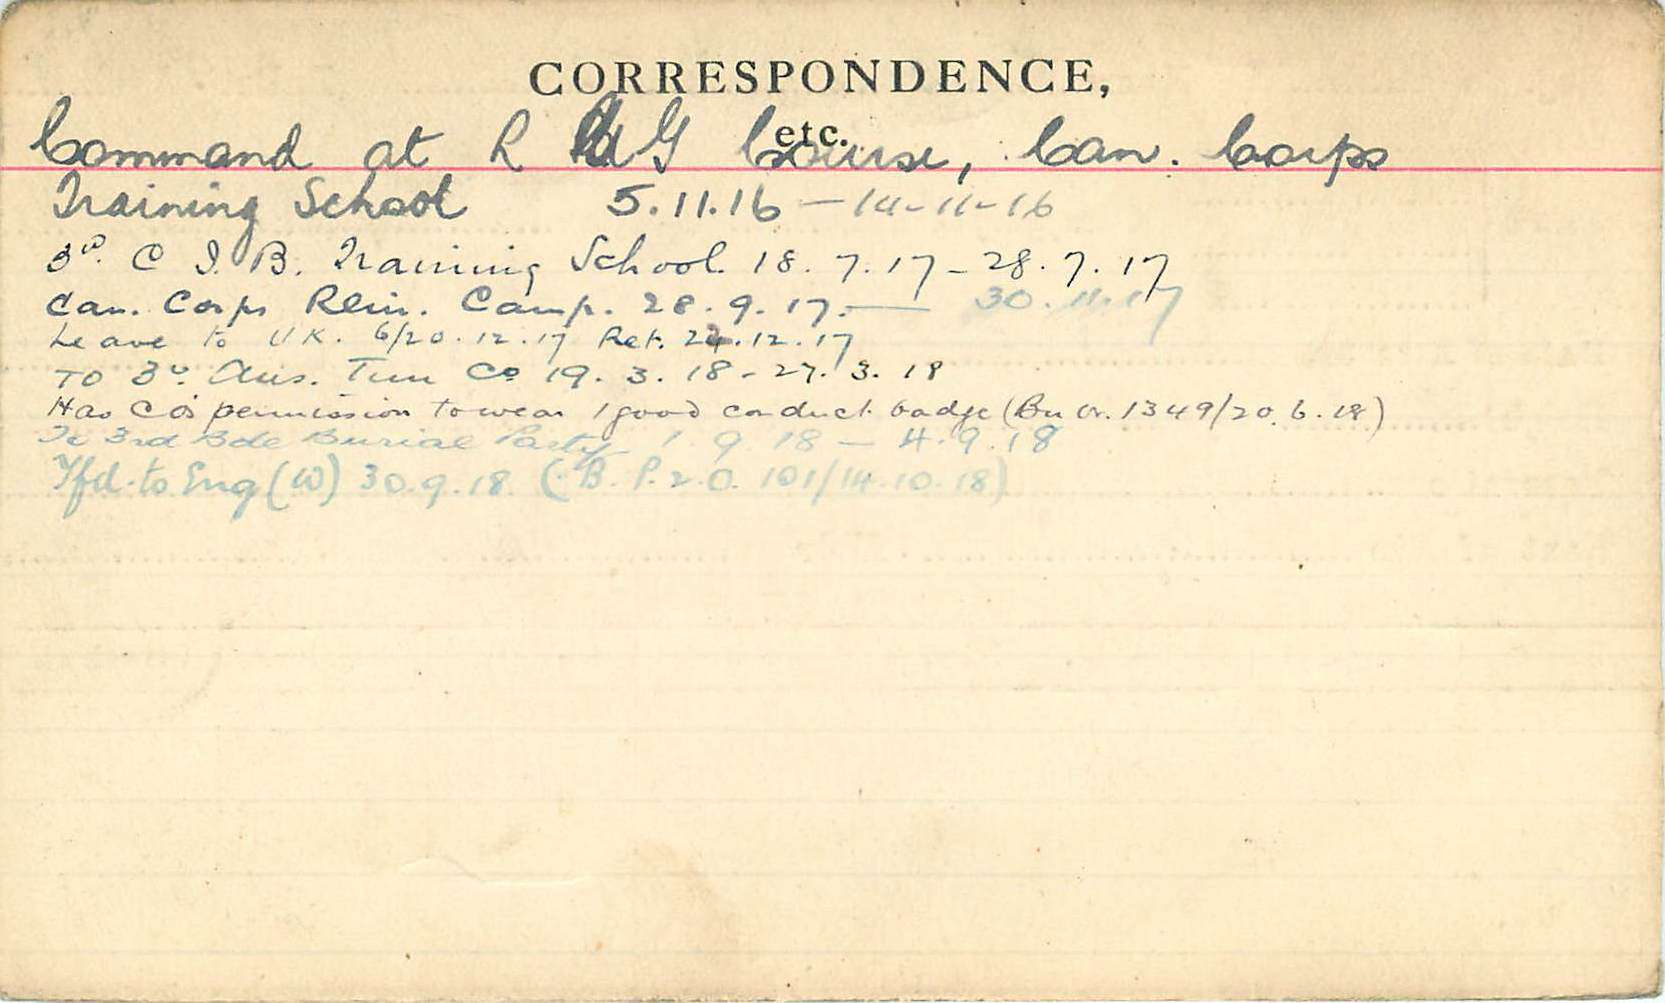 CORRESPONDENCE,
etc.
Command at L G Course, Can. Corps
Training School 5.11.16 - 14-11-16
3rd. C I. B. Training School 18.7.17 - 28.7.17
Can. Corps Rein. Camp. 28.9.17. — 30.11.17
Leave to UK. 6/20.12.17 Ret. 24.12.17
TO 3rd. Aus. Tun Co 19.3.18 - 27.3.18
Has CO's permission to wear 1 good conduct badge (Bn Or. 1349/20.6.18)
To 3rd Bde Burial Party 1.9.18 — 4.9.18
Tfd. to Eng (W) 30.9.18. (B. P.2.O. 101/14.10.18)